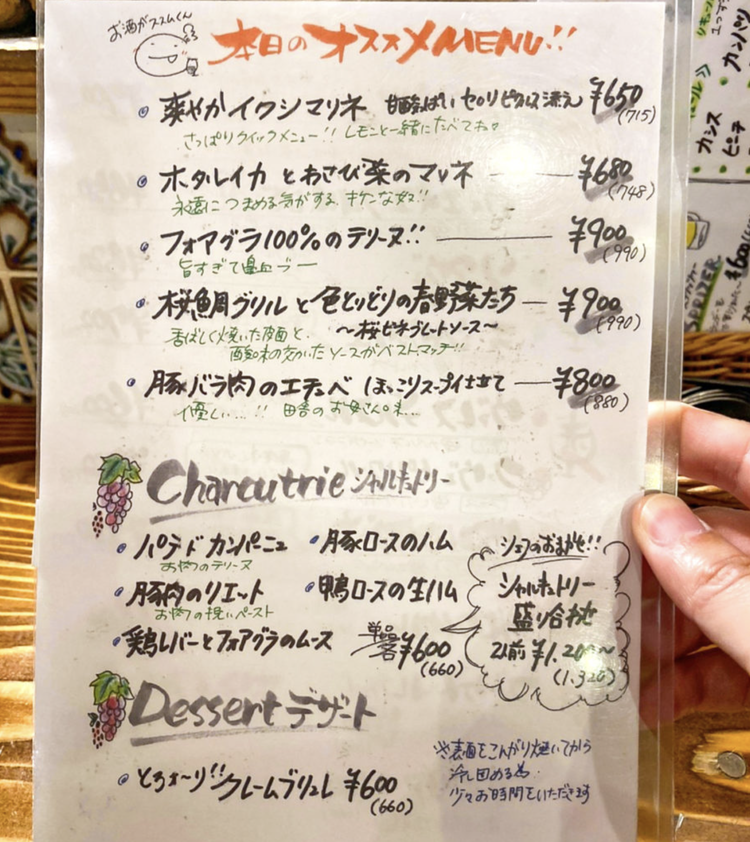 お酒がススムくん
本日のオススメMENU!!
爽やかイワシマリネ 甘酸っぱいセロリピクルス添え ¥650
(715)
さっぱりクイックメニュー!! レモンと一緒にたべてね♡
ホタルイカとわさび菜のマリネ ¥680
(748)
永遠につまめる気がする、キケンな奴!!
フォアグラ100%のテリーヌ!! ¥900
(990)
旨すぎて鼻血ブー
桜鯛グリルと色とりどりの春野菜たち ¥900
(990)
〜桜ビネグレットソース〜
香ばしく焼いた皮面と、
酸味の効いたソースがベストマッチ!!
豚バラ肉のエチュベ ほっこりスープ仕立て ¥800
(880)
優しい…!! 田舎のお母さん味…
Charcutrie シャルキュトリー
パテドカンパーニュ
お肉のテリーヌ
豚ロースのハム
豚肉のリエット
お肉の挽いペースト
鴨ロースの生ハム
鶏レバーとフォアグラのムース
単品各¥600
(660)
シェフのおまかせ!!
シャルキュトリー
盛り合わせ
2人前 ¥1,200〜
(1,320)
Dessert デザート
とろぉ〜り!!クレームブリュレ ¥600
(660)
※表面をこんがり焼いてから
冷し固める為、
少々お時間をいただきます
カンパリ
カシス
ピーチ
SPRIZER
¥600